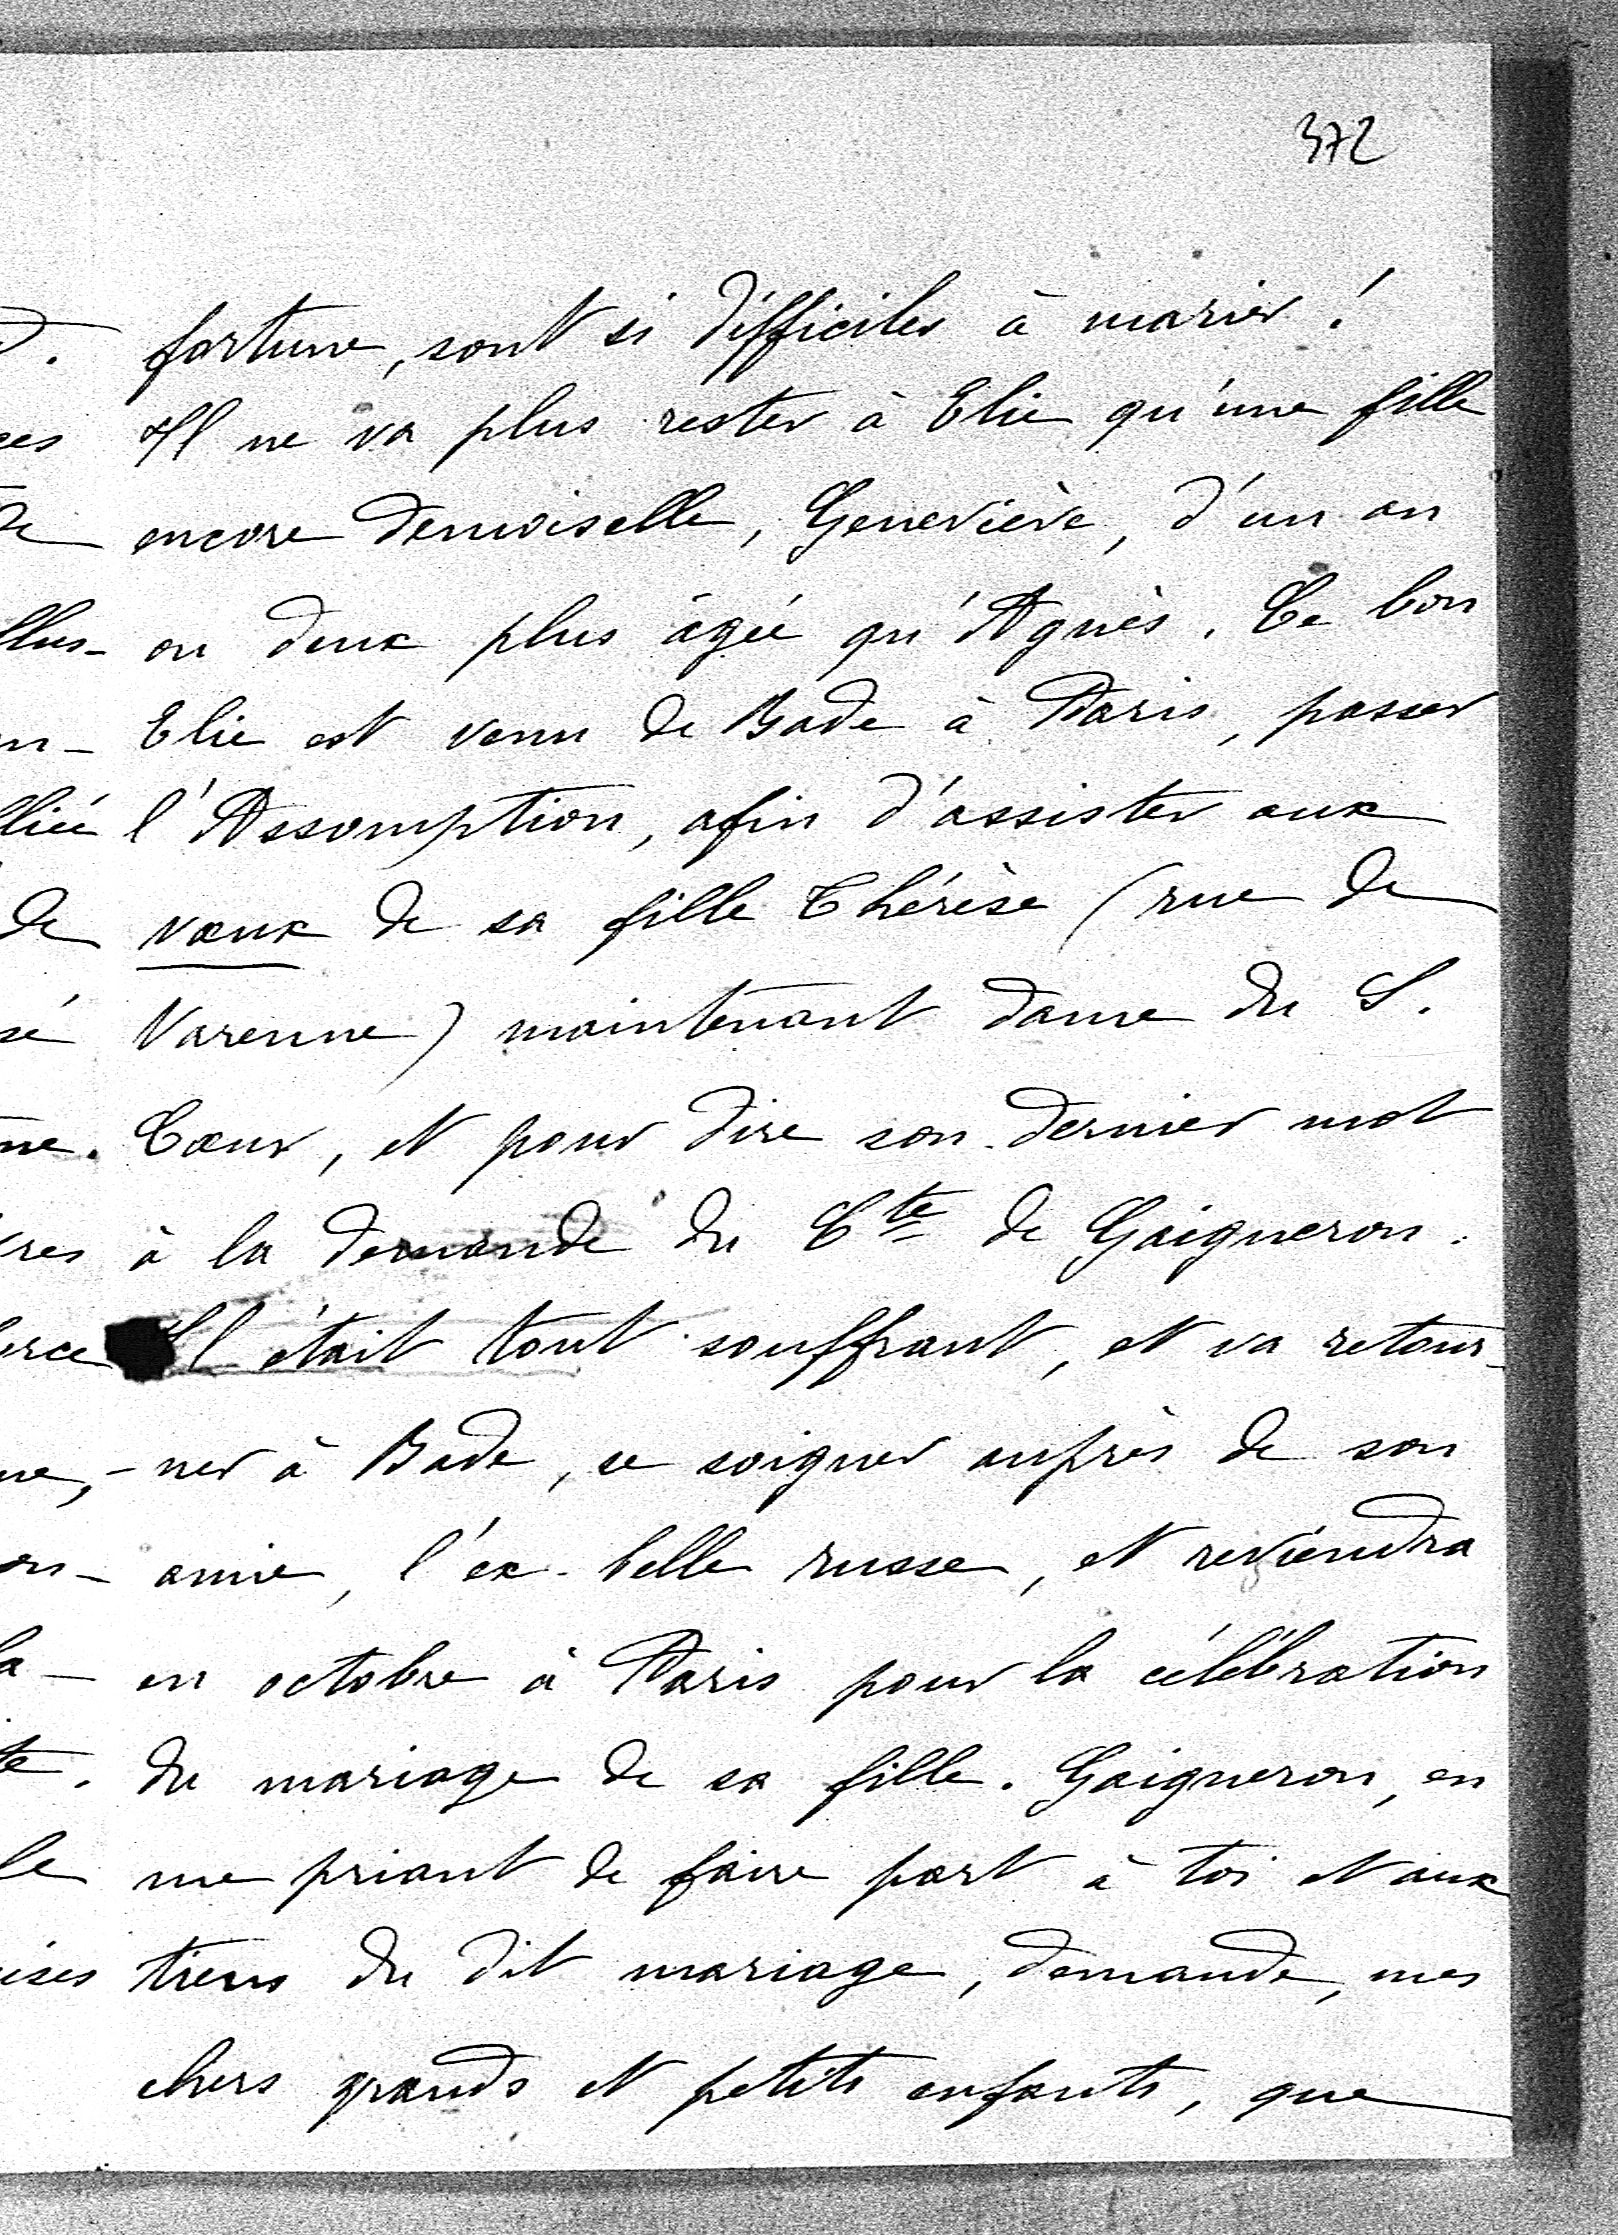 372
fortune, sont si difficiles à marier !
Il ne va plus rester à Elie qu'une fille
encore demoiselle, Geneviève, d'un an
ou deux plus âgée qu'Agnès. Ce bon
Elie est venu de Bade à Paris, passer
l'Assomption, afin d'assister aux
vœux de sa fille Thérèse (rue de
Varenne) maintenant dame du S.
Cœur, et pour dire son dernier mot
à la demande du Cte de Gaigneron.
Il était tout souffrant, et va retour-
-ner à Bade, se soigner auprès de son
amie, l'ex-belle russe, et reviendra
en octobre à Paris pour la célébration
du mariage de sa fille. Gaigneron, en
me priant de faire part à toi et aux
tiens du dit mariage, demande, mes
chers grands et petits enfants, que